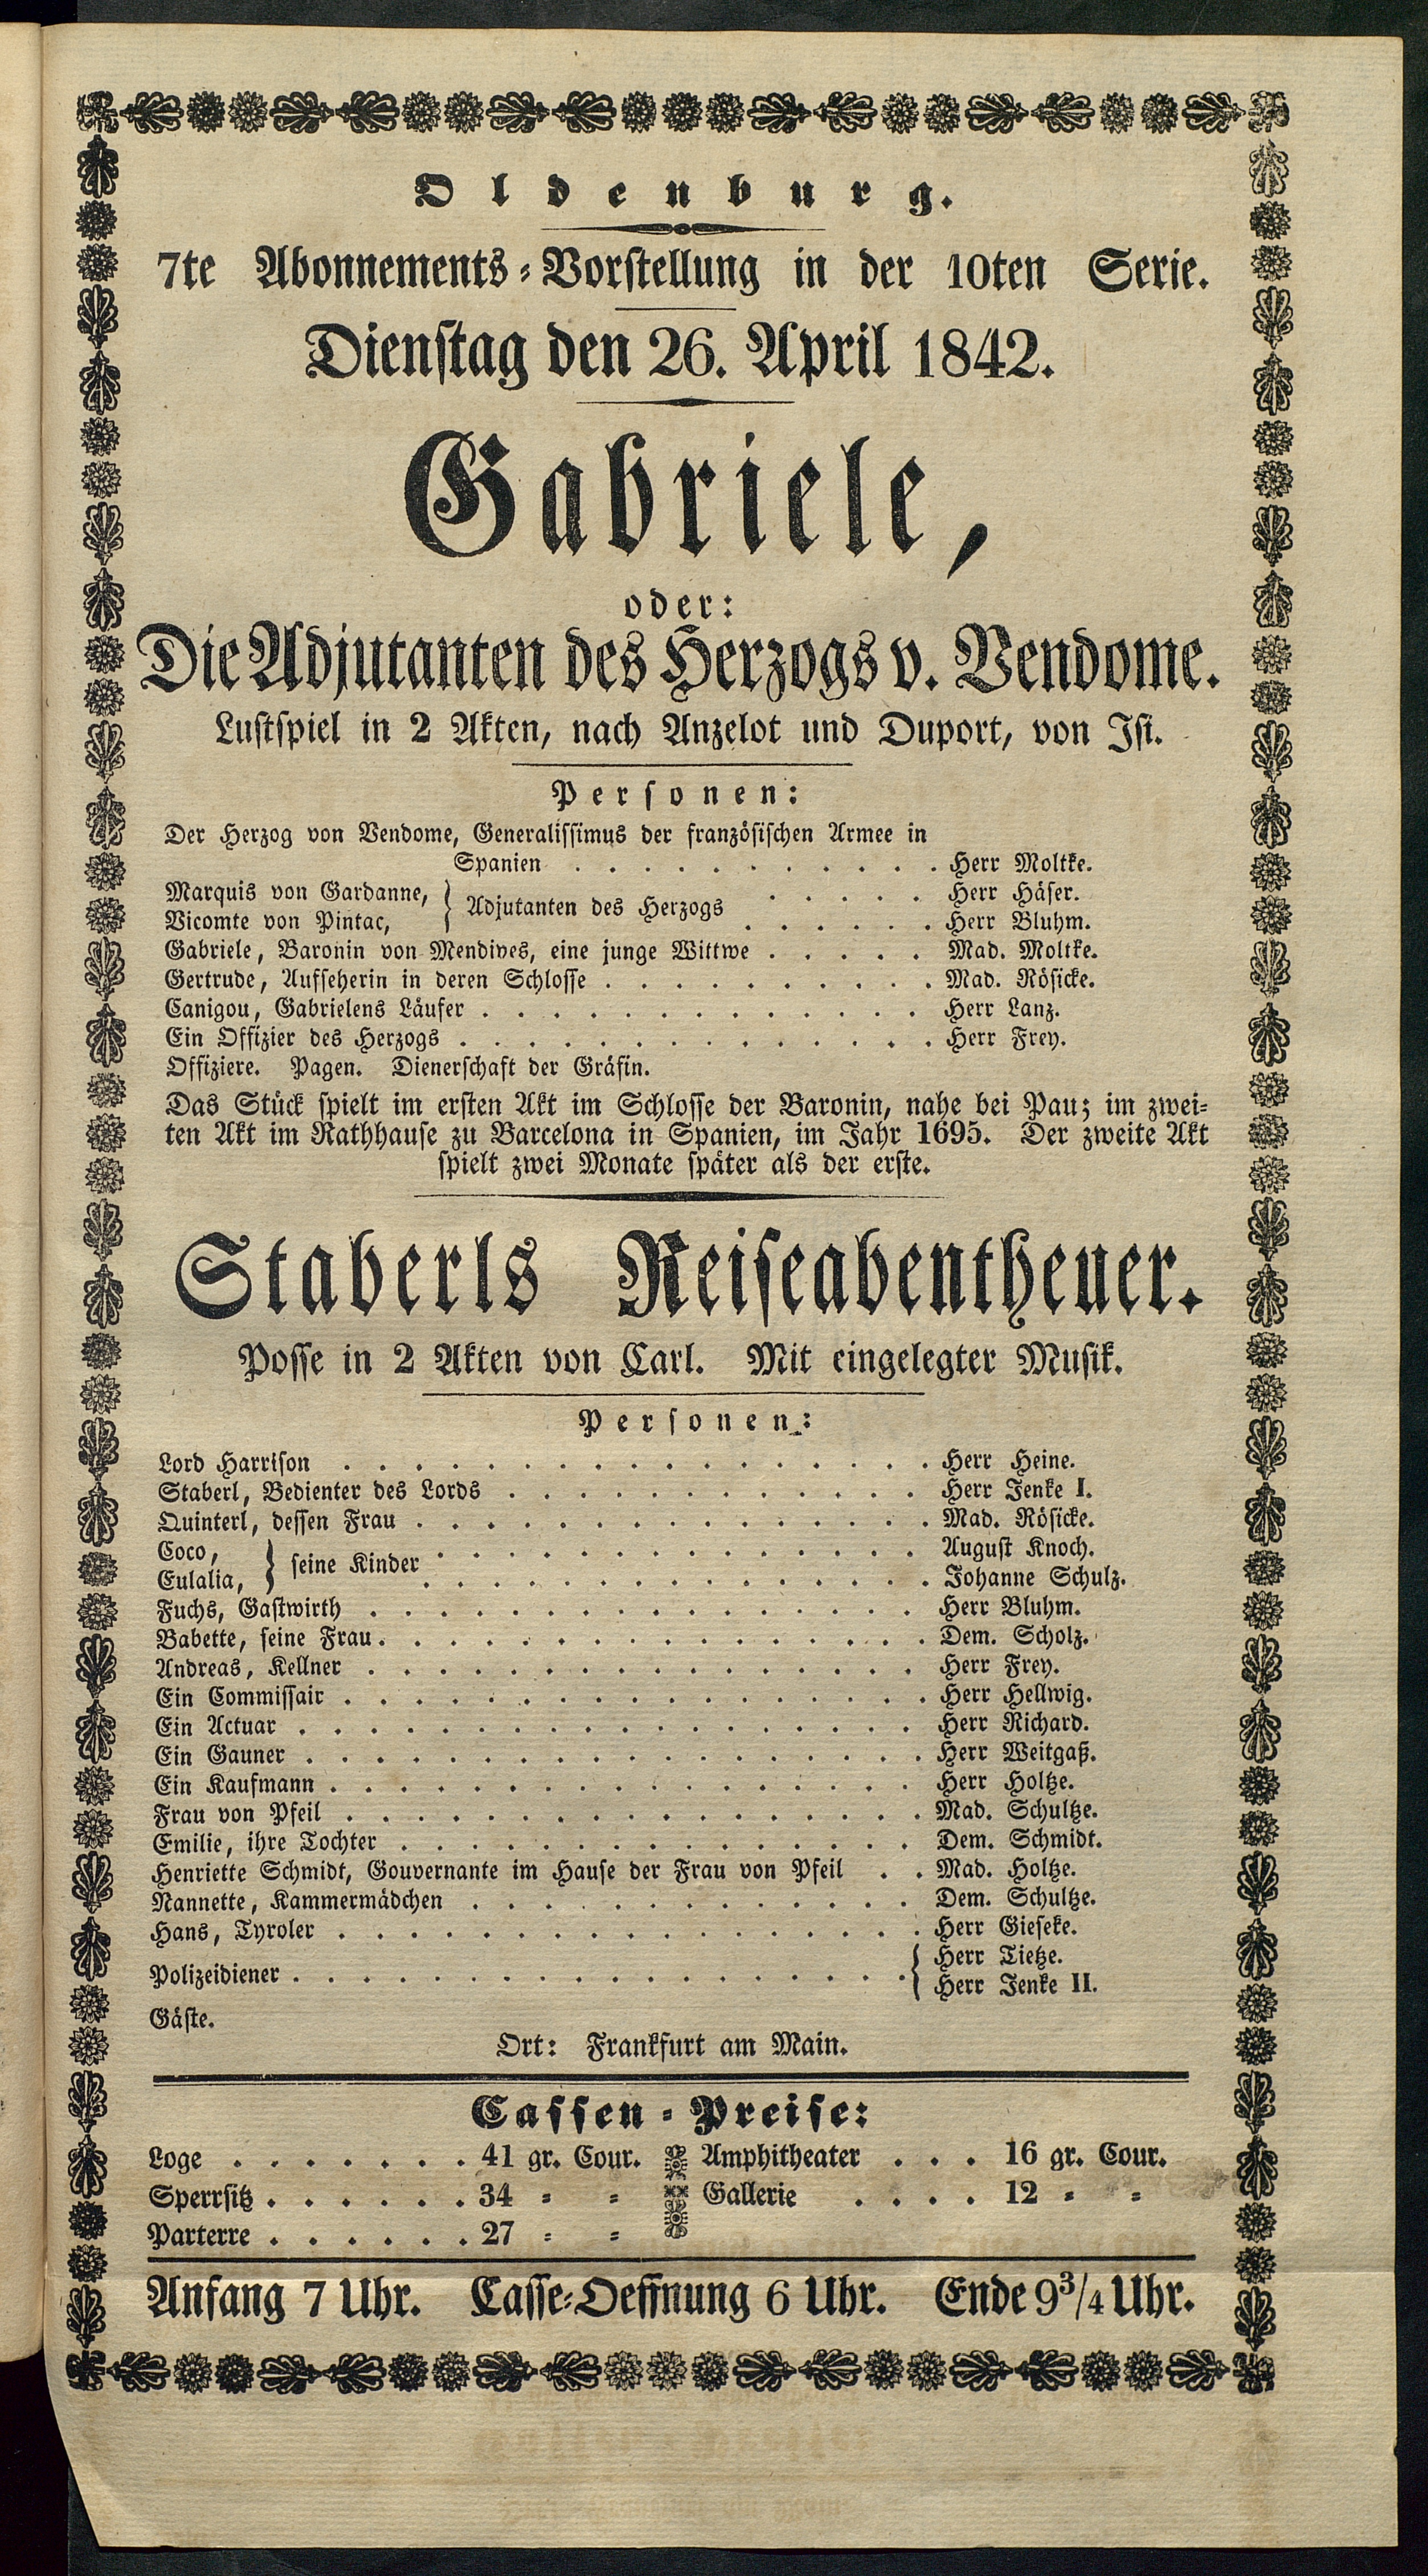 Oldenburg.
7te Abonnements-Vorstellung in der 10ten Serie.
Dienstag den 26. April 1842.
Gabriele,
oder:
Die Adjutanten des Herzogs v. Vendome.
Lustspiel in 2 Akten, nach Anzelot und Duport, von Ist.
Personen:
Der Herzog von Vendome, Generalissimus der französischen Armee in
Spanien . . . . . . . . . . . Herr Moltke.
Marquis von Gardanne, } Adjutanten des Herzogs . . . . . Herr Häser.
Vicomte von Pintac, . . . . . . Herr Bluhm.
Gabriele, Baronin von Mendives, eine junge Wittwe . . . . . Mad. Moltke.
Gertrude, Aufseherin in deren Schlosse . . . . . . . . . . Mad. Rösicke.
Canigou, Gabrielens Läufer . . . . . . . . . . . . . Herr Lanz.
Ein Offizier des Herzogs . . . . . . . . . . . . . . Herr Frey.
Offiziere. Pagen. Dienerschaft der Gräfin.
Das Stück spielt im ersten Akt im Schlosse der Baronin, nahe bei Pau; im zwei-
ten Akt im Rathhause zu Barcelona in Spanien, im Jahr 1695. Der zweite Akt
spielt zwei Monate später als der erste.
Staberls Reiseabentheuer.
Posse in 2 Akten von Carl. Mit eingelegter Musik.
Personen:
Lord Harrison . . . . . . . . . . . . . . . . . Herr Heine.
Staberl, Bedienter des Lords . . . . . . . . . . . . Herr Jenke I.
Quinterl, dessen Frau . . . . . . . . . . . . . . . Mad. Rösicke.
Coco, } seine Kinder . . . . . . . . . . . . . . August Knoch.
Eulalia, . . . . . . . . . . . . . . . Johanne Schulz.
Fuchs, Gastwirth . . . . . . . . . . . . . . . . Herr Bluhm.
Babette, seine Frau . . . . . . . . . . . . . . . . Dem. Scholz.
Andreas, Kellner . . . . . . . . . . . . . . . . Herr Frey.
Ein Commissair . . . . . . . . . . . . . . . . . Herr Hellwig.
Ein Actuar . . . . . . . . . . . . . . . . . . Herr Richard.
Ein Gauner . . . . . . . . . . . . . . . . . . Herr Weitgaß.
Ein Kaufmann . . . . . . . . . . . . . . . . . Herr Holtze.
Frau von Pfeil . . . . . . . . . . . . . . . . . Mad. Schultze.
Emilie, ihre Tochter . . . . . . . . . . . . . . . Dem. Schmidt.
Henriette Schmidt, Gouvernante im Hause der Frau von Pfeil . . Mad. Holtze.
Nannette, Kammermädchen . . . . . . . . . . . . . Dem. Schultze.
Hans, Tyroler . . . . . . . . . . . . . . . . . Herr Gieseke.
Polizeidiener . . . . . . . . . . . . . . . . . . { Herr Tietze.
Herr Jenke II.
Gäste.
Ort: Frankfurt am Main.
Cassen-Preise:
Loge . . . . . . . 41 gr. Cour. Amphitheater . . . 16 gr. Cour.
Sperrsitz . . . . . . 34 = = Gallerie . . . . 12 = =
Parterre . . . . . . 27 = =
Anfang 7 Uhr. Casse-Oeffnung 6 Uhr. Ende 9 3/4 Uhr.